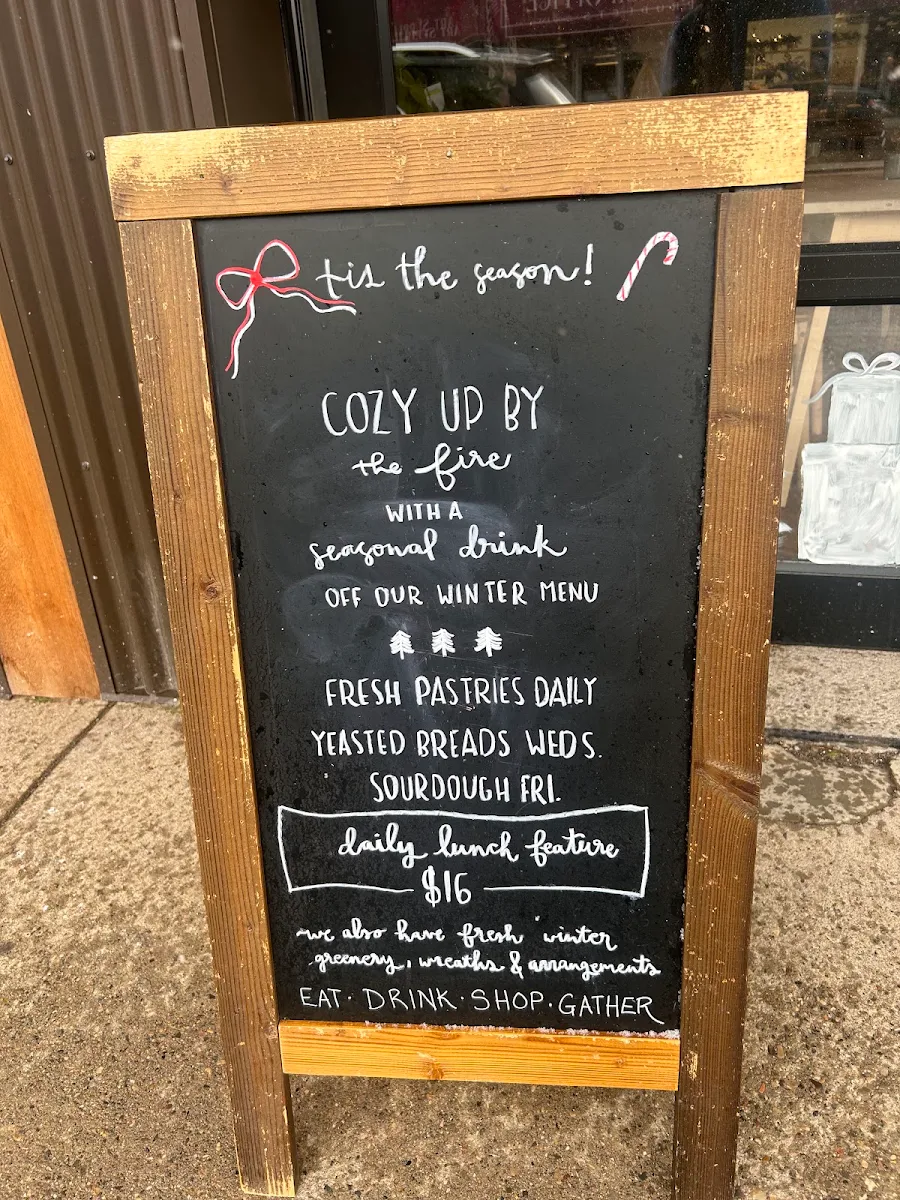 tis the season!
COZY UP BY
the fire
WITH A
seasonal drink
OFF OUR WINTER MENU
FRESH PASTRIES DAILY
YEASTED BREADS WEDS.
SOURDOUGH FRI.
daily lunch feature
$16
we also have fresh winter
greenery, wreaths & arrangements
EAT · DRINK · SHOP · GATHER